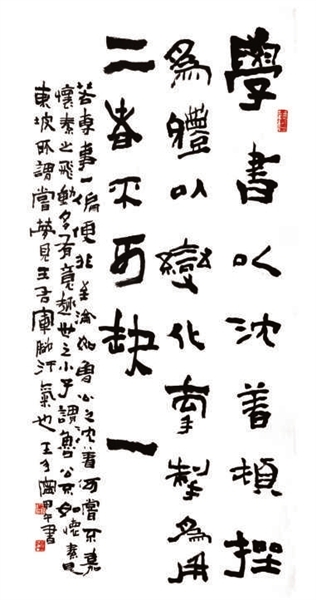 學書以沈着頓挫
為體以變化牽製為用
二者不可缺一
若專事一偏便非至論如魯公之沈着何嘗不嘉
懷素之飛動多有意趣世之小子謂魯公不如懷素是
東坡所謂嘗夢見王右軍腳汗氣也 王 甲午書